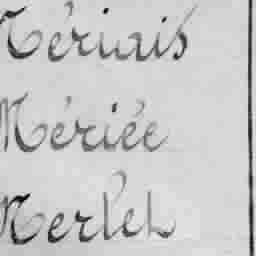 Mériais
Mériée
Merlet